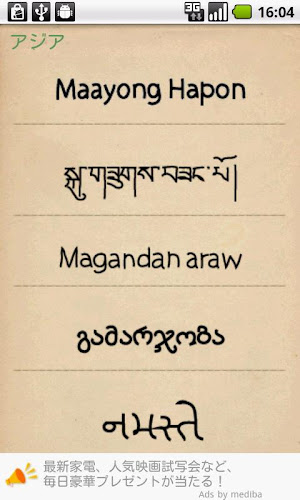 3G
16:04
アジア
Maayong Hapon
སྐུ་གཟུགས་བཟང་པོ།
Magandan araw
გამარჯობა
નમસ્તે
最新家電、人気映画試写会など、
毎日豪華プレゼントが当たる！
Ads by mediba